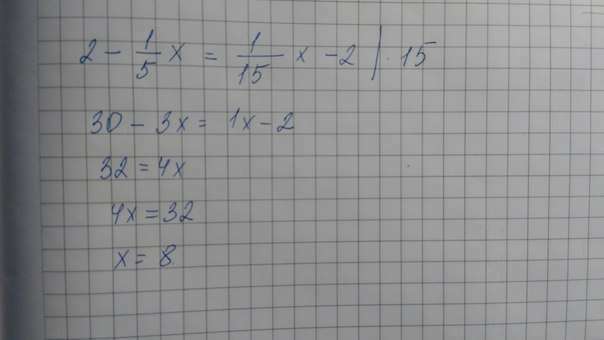 2 - 1/5 x = 1/15 x - 2 | · 15
30 - 3x = 1x - 2
32 = 4x
4x = 32
x = 8